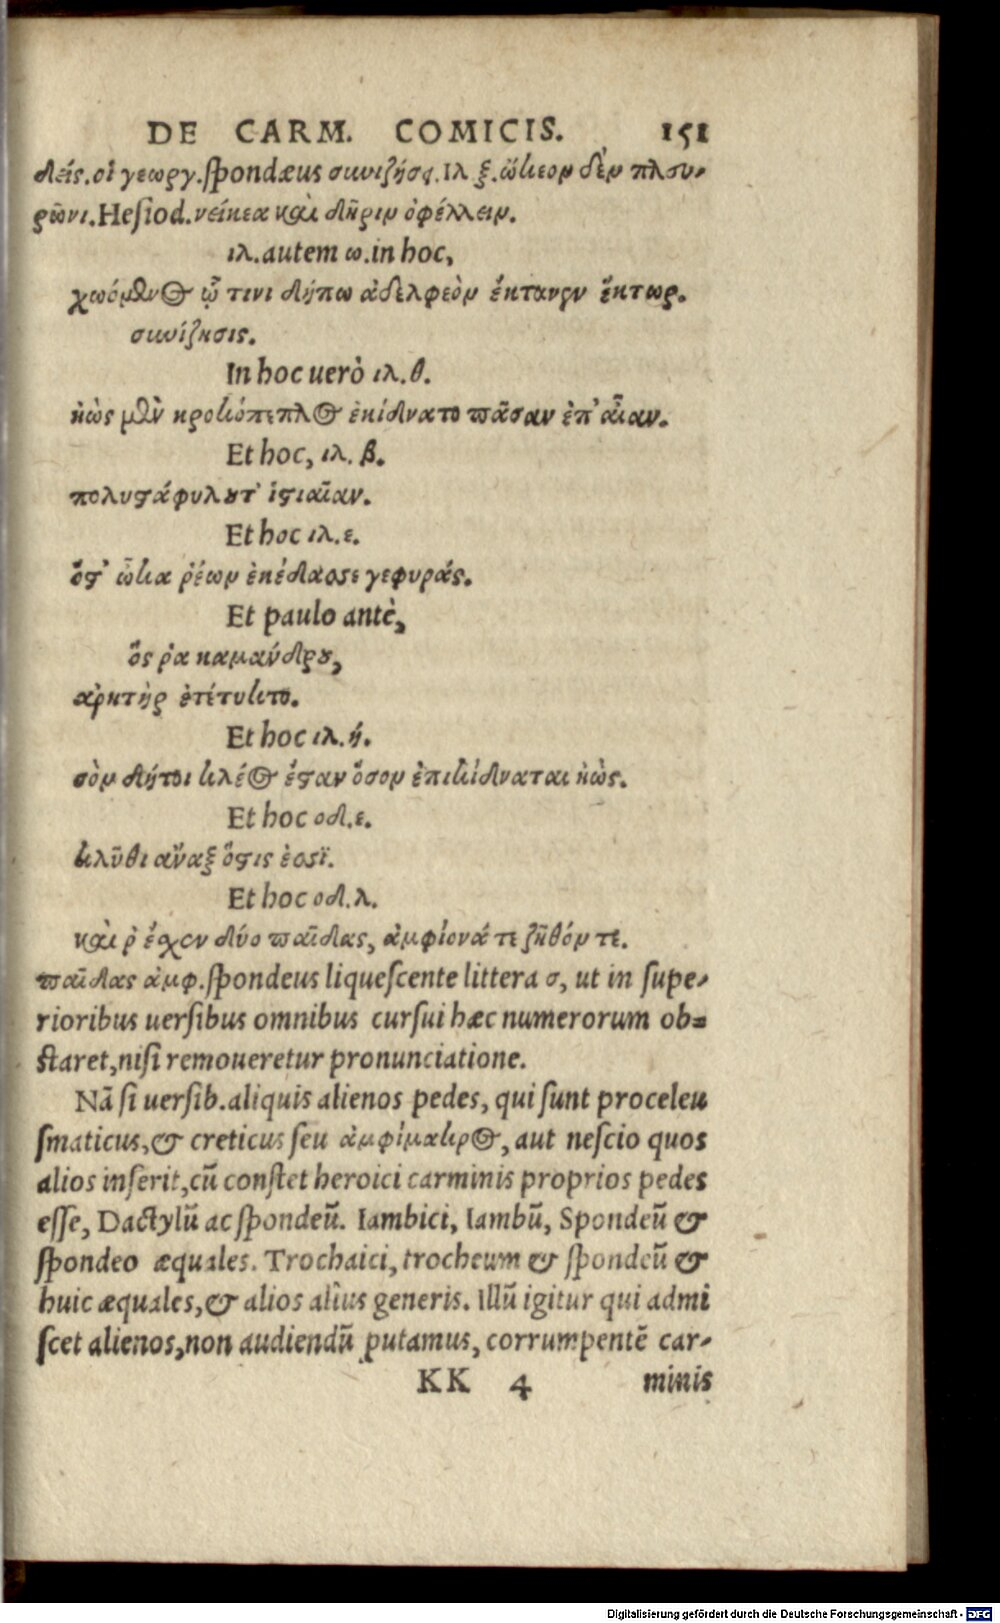 DE CARM. COMICIS. 151
δείς. οἱ γεωργ. ſpondæus συνιζήσϛ. Ιλ ξ. ὤκεον δὲν πλευ-
ρῶνι. Heſiod. νείκεα καὶ δῆριν ὀφέλλειν.
ιλ. autem ω. in hoc,
χωόμενος ᾧ τινι δήπω ἀδελφεὸν ἔκτανεν ἕκτωρ.
συνίζησις.
In hoc uerò ιλ. θ.
ἠὼς μὲν κροκόπεπλος ἐκίδνατο πᾶσαν ἐπ' αἶαν.
Et hoc, ιλ. β.
πολυϛάφυλουτ' ἱϛιαῖαν.
Et hoc ιλ. ε.
ὅϛ' ὦκα ῥέων ἐκέδασσε γεφυράς.
Et paulo antè,
ὅς ῥα καμάνδρου,
ἀρητὴρ ἐτέτυκτο.
Et hoc ιλ. ή.
σὸν δήτοι κλέος ἔϛαν ὅσον ἐπικίδναται ἠὼς.
Et hoc οδ. ε.
κλῦθι ἄναξ ὅϛις ἐσσὶ.
Et hoc οδ. λ.
καὶ ῥ ἔχον δύο παῖδας, ἀμφίονά τε ζῆθόν τε.
παῖδας ἀμφ. ſpondeus liqueſcente littera σ, ut in ſupe-
rioribus uerſibus omnibus curſui hæc numerorum ob=
ſtaret, niſi remoueretur pronunciatione.
Nã ſi uerſib. aliquis alienos pedes, qui ſunt proceleu
ſmaticus, & creticus ſeu ἀμφίμακρος, aut neſcio quos
alios inſerit, cũ conſtet heroici carminis proprios pedes
eſſe, Dactylũ ac ſpondeũ. Iambici, Iambũ, Spondeũ &
ſpondeo æquales. Trochaici, trocheum & ſpondeũ &
huic æquales, & alios alius generis. Illũ igitur qui admi
ſcet alienos, non audiendũ putamus, corrumpentẽ car-
KK 4 minis
Digitalisierung gefördert durch die Deutsche Forschungsgemeinschaft - DFG